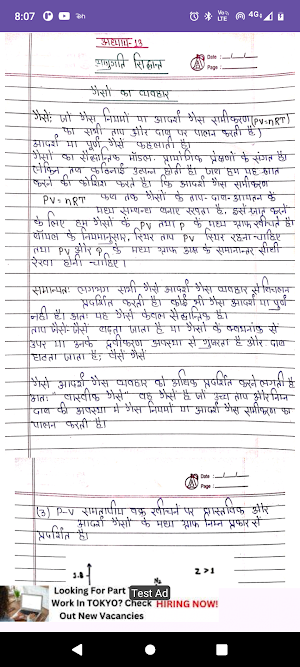 8:07
4G
अध्याय-13
अणुगति सिद्धान्त
Date :
Page :
गैसों का व्यवहार
गैसें: जो गैस नियमों या आदर्श गैस समीकरण (PV=nRT)
का सभी ताप और दाब पर पालन करती है)
आदर्श या पूर्ण गैसें कहलाती है।
गैसों का सैद्धान्तिक मॉडल प्रायोगिक प्रेक्षणों के संगत है।
लेकिन तब कठिनाई उत्पन्न होती है। जब हम यह ज्ञात
करने की कोशिश करते है। कि आदर्श गैस समीकरण
PV=nRT कब तक गैसों के ताप-दाब-आयतन के
मध्य सम्बन्ध बनाए रखता है, इसे ज्ञात करने
के लिए हम गैसों के PV तथा P के मध्य ग्राफ खींचते है।
बॉयल के नियमानुसार, स्थिर ताप PV स्थिर रहना चाहिए
तथा PV और P के मध्य ग्राफ अक्ष के समानान्तर सीधी
रेखा होनी चाहिए।
सामान्यतः लगभग सभी गैसें आदर्श गैस व्यवहार से विचलन
प्रदर्शित करती है। कोई भी गैस आदर्श या पूर्ण
नही है। अतः यह गैसें केवल सैद्धान्तिक है।
ताप जैसे-जैसे बढ़ता जाता है या गैसों के क्वथनांक से
ऊपर या उनके द्रवीकरण अवस्था से गुजरता है और दाब
घटता जाता है; वैसे गैसें
गैसें आदर्श गैस व्यवहार को अधिक प्रदर्शित करने लगती है
अतः "वास्तविक गैसें" वह गैसें है जो उच्च ताप और निम्न
दाब की अवस्था में गैस नियमों या आदर्श गैस समीकरण का
पालन करती है।
Date :
Page :
(3) P-V समतापीय वक्र खींचने पर वास्तविक और
आदर्श गैसों के मध्य ग्राफ निम्न प्रकार से
प्रदर्शित है।
N₂
Z>1
Looking For Part
Work In TOKYO? Check
Out New Vacancies
Test Ad
HIRING NOW!